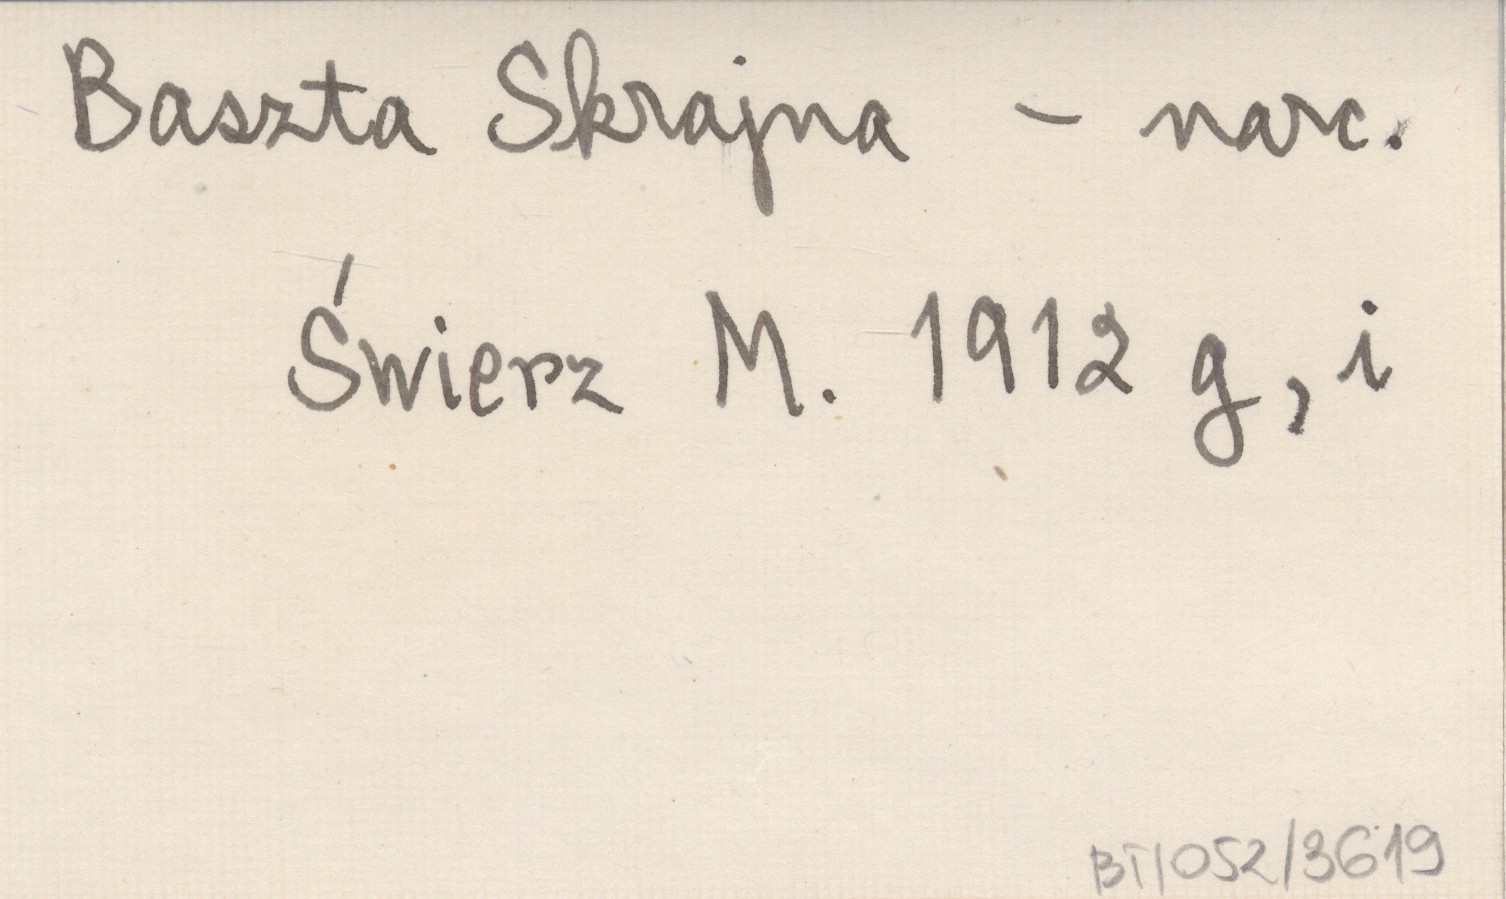 Baszta Skrajna - narc.
Świerz M. 1912 g, i
BT/052/3619